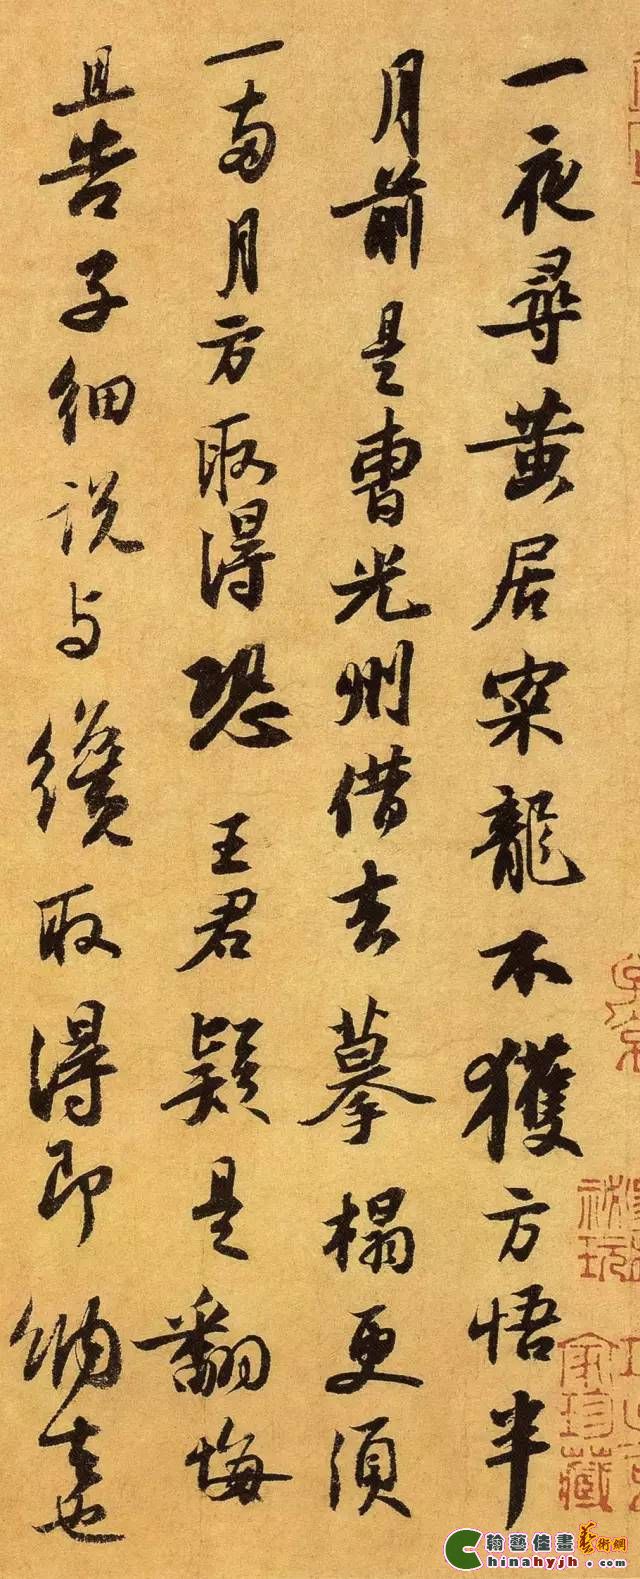 一夜尋黄居寀龍不獲方悟半
月前是曹光州借去摹搨更須
一兩月方取得恐王君疑是翻悔
且告子細說与纔取得即納去也
翰藝佳畫藝術網
Chinahyjh.com